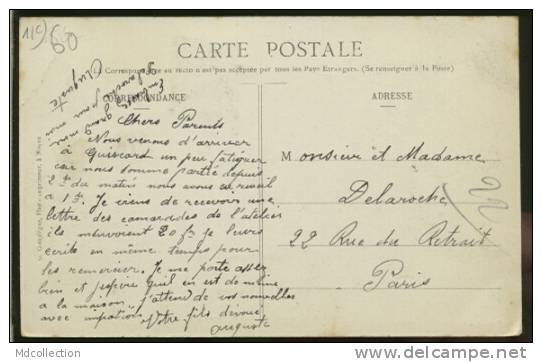 11c
60
CARTE POSTALE
La Correspondance au recto n'est pas acceptée par tous les Pays Etrangers. (Se renseigner à la Poste)
CORRESPONDANCE
ADRESSE
Embrasse grand mère
pour moi
Auguste
Chers Parents
Nous venons d'arriver
à Guiscard un peu fatiguer
car nous somme partie depuis
2 du matin nous avons
a 1 Je viens de recevoir une
lettre des camarades de l'atelier
ils m'envoient 20 f je leurs
ecrits en même temps pour
les remercier. Je me porte assez
bien et j'espère qu'il en est de même
a la maison, j'attend de vos nouvelles
avec impatience Votre fils dévoué
auguste
Monsieur et Madame
Delaroche
22 Rue du Retrait
Paris
Mdcollection
www.delcampe.net